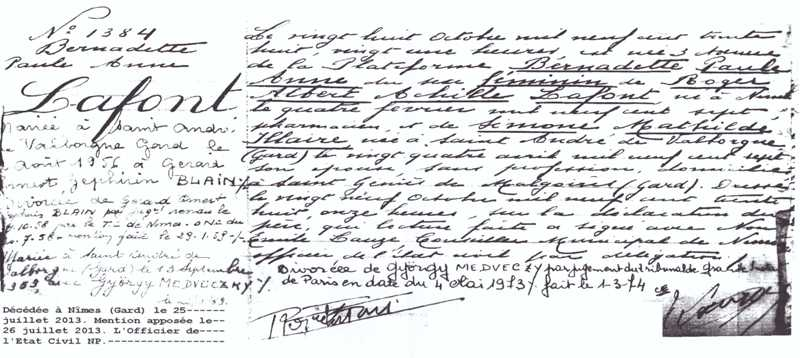 N° 1384
Bernadette
Paule Anne
Lafont
Mariée à Saint André
Valborgne Gard le
août 1956 à Gérard
Ernest Zéphirin BLAIN
divorcée de Gérard Ernest
BLAIN par
10.58 par le T. de Nîmes
7.58 29-1-59
Mariée à Saint André de
Valborgne (Gard) le 13 septembre
avec György MEDVECZKY
Décédée à Nîmes (Gard) le 25------
juillet 2013. Mention apposée le--
26 juillet 2013. L'Officier de----
l'Etat Civil NP.------------------
Le vingt huit Octobre mil neuf cent trente
huit, vingt une heures, est née 3 Avenue
de la Plateforme Bernadette Paule
Anne du sexe féminin de Roger
Albert Achille Lafont né à Nîmes
le quatre février mil neuf cent sept,
pharmacien, et de Simone Mathilde
Illaire née à Saint André de Valborgne
(Gard) le vingt quatre avril mil neuf cent sept
son épouse, sans profession, domiciliés
à Saint Geniès de Malgoirès (Gard). Dressé
le vingt neuf Octobre mil neuf cent trente
huit, onze heures, sur la déclaration du
père, qui lecture faite a signé avec Nous
Emile Conseiller Municipal de Nîmes
officier de l'Etat civil par délégation.
Divorcée de György MEDVECZKY par jugement du tribunal de Grande Instance
de Paris en date du 4 Mai 1973 / fait le 1-3-74